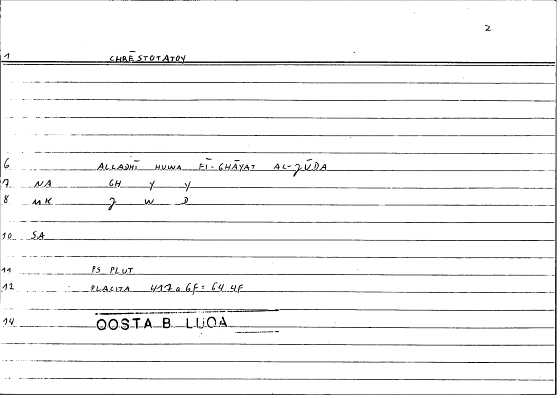 2
1 CHRĒSTOTATOY
6 ALLADHĪ HUWA FĪ-GHĀYAT AL-ǦŪDA
7 NA GH Y Y
8 MK Ǧ W D
10 SA
11 PS PLUT
12 PLACITA 417a6F = 64.4F
14 OOSTA B LUQA